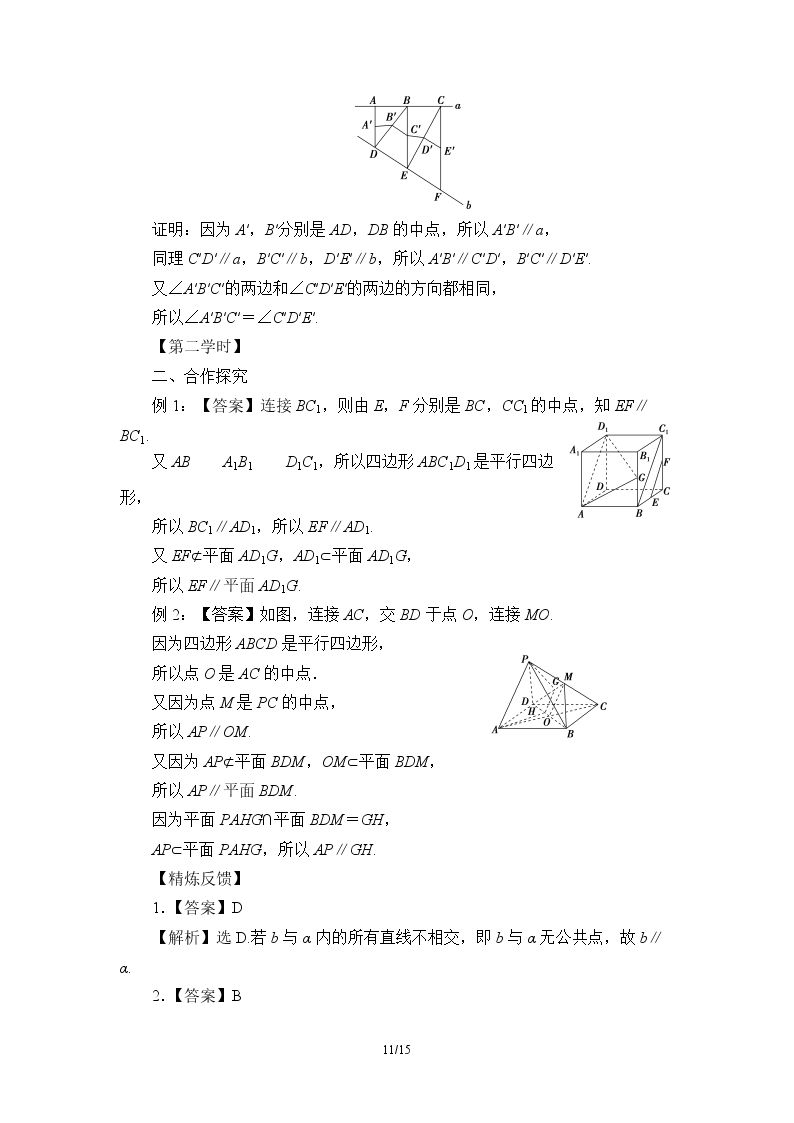 A B C a
A′ B′ C′
D D′ E′
E
F
b
证明：因为 A′，B′分别是 AD，DB 的中点，所以 A′B′∥a，
同理 C′D′∥a，B′C′∥b，D′E′∥b，所以 A′B′∥C′D′，B′C′∥D′E′.
又∠A′B′C′的两边和∠C′D′E′的两边的方向都相同，
所以∠A′B′C′＝∠C′D′E′.
【第二学时】
二、合作探究
例 1：【答案】连接 BC₁，则由 E，F 分别是 BC，CC₁的中点，知 EF∥
BC₁.
D₁ C₁
A₁ B₁ F
G
D C
E
A B
又 AB A₁B₁ D₁C₁，所以四边形 ABC₁D₁是平行四边
形，
所以 BC₁∥AD₁，所以 EF∥AD₁.
又 EF⊄平面 AD₁G，AD₁⊂平面 AD₁G，
所以 EF∥平面 AD₁G.
例 2：【答案】如图，连接 AC，交 BD 于点 O，连接 MO.
因为四边形 ABCD 是平行四边形，
所以点 O 是 AC 的中点．
P
G M
D C
H O
A B
又因为点 M 是 PC 的中点，
所以 AP∥OM.
又因为 AP⊄平面 BDM，OM⊂平面 BDM，
所以 AP∥平面 BDM.
因为平面 PAHG∩平面 BDM＝GH，
AP⊂平面 PAHG，所以 AP∥GH.
【精炼反馈】
1.【答案】D
【解析】选 D.若 b 与 α 内的所有直线不相交，即 b 与 α 无公共点，故 b∥
α.
2.【答案】B
11/15